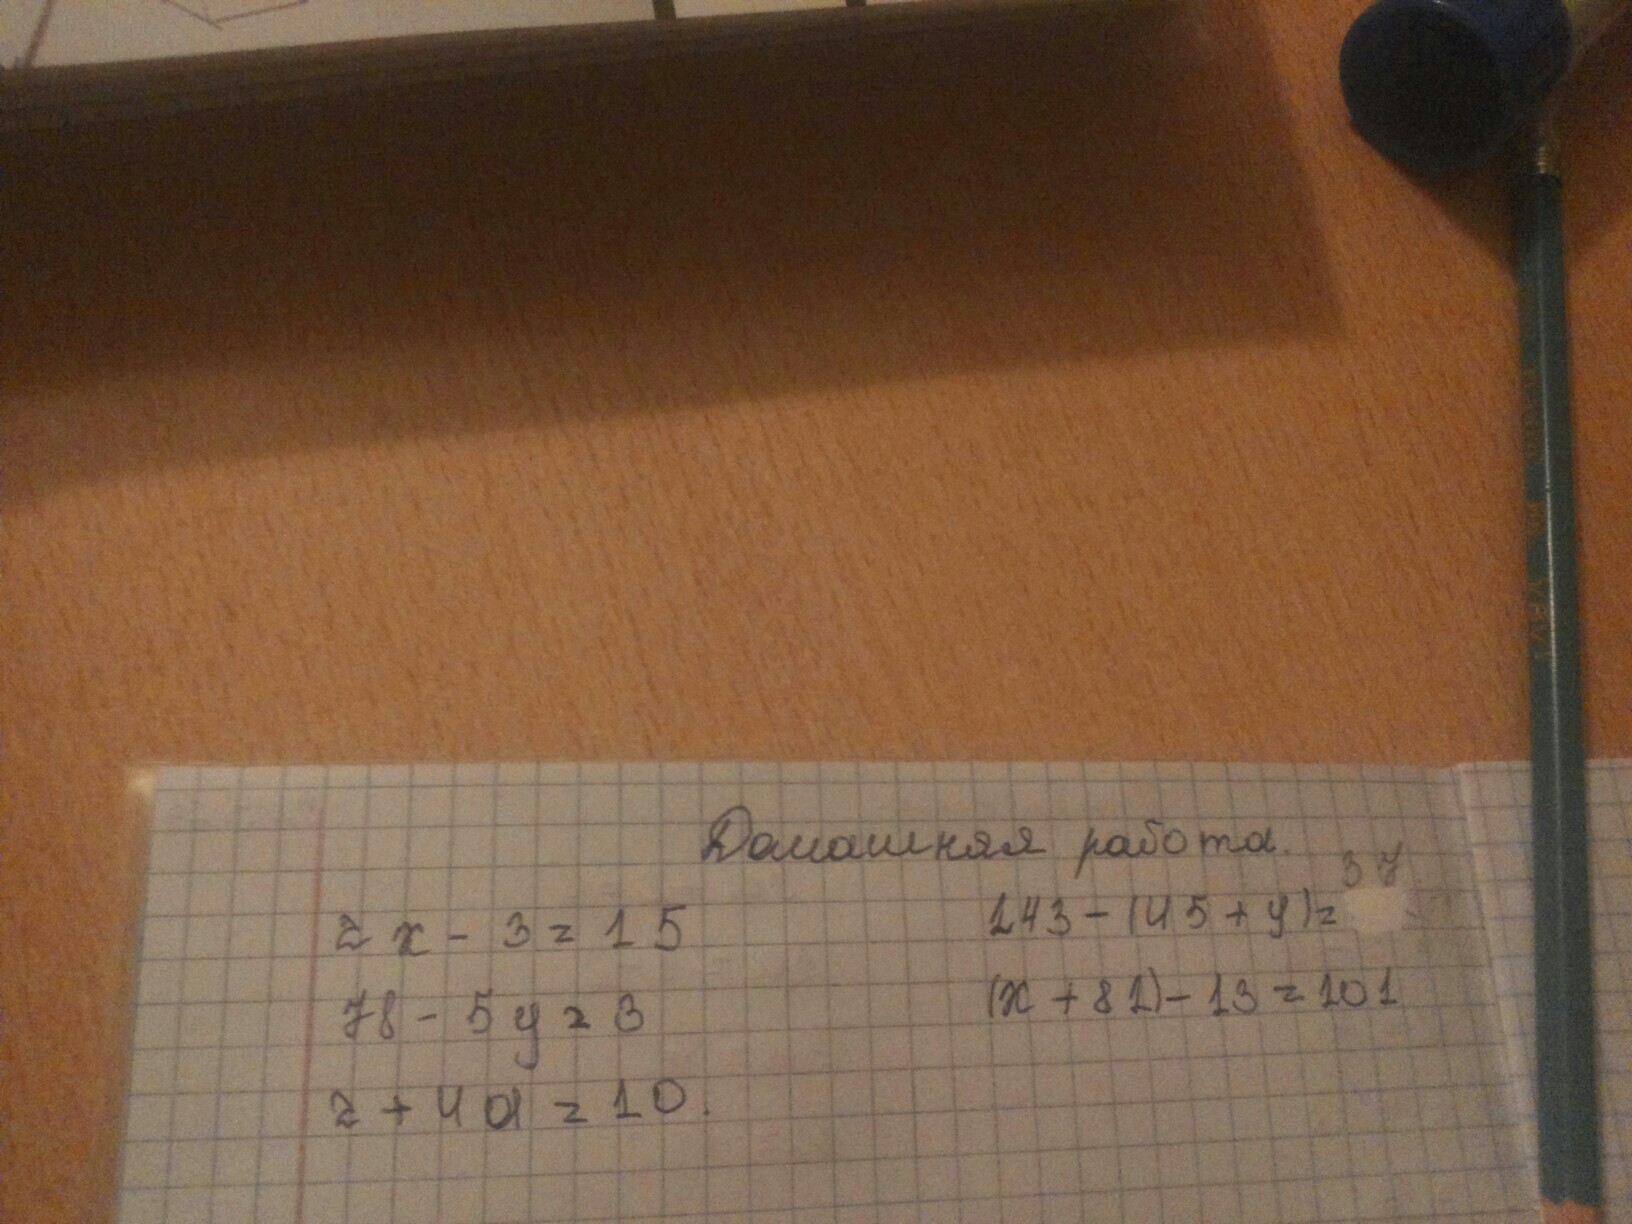 Домашняя работа.
2x - 3 = 15
78 - 5y = 3
2 + 4a = 10.
37
243 - (45 + y) =
(x + 82) - 13 = 101